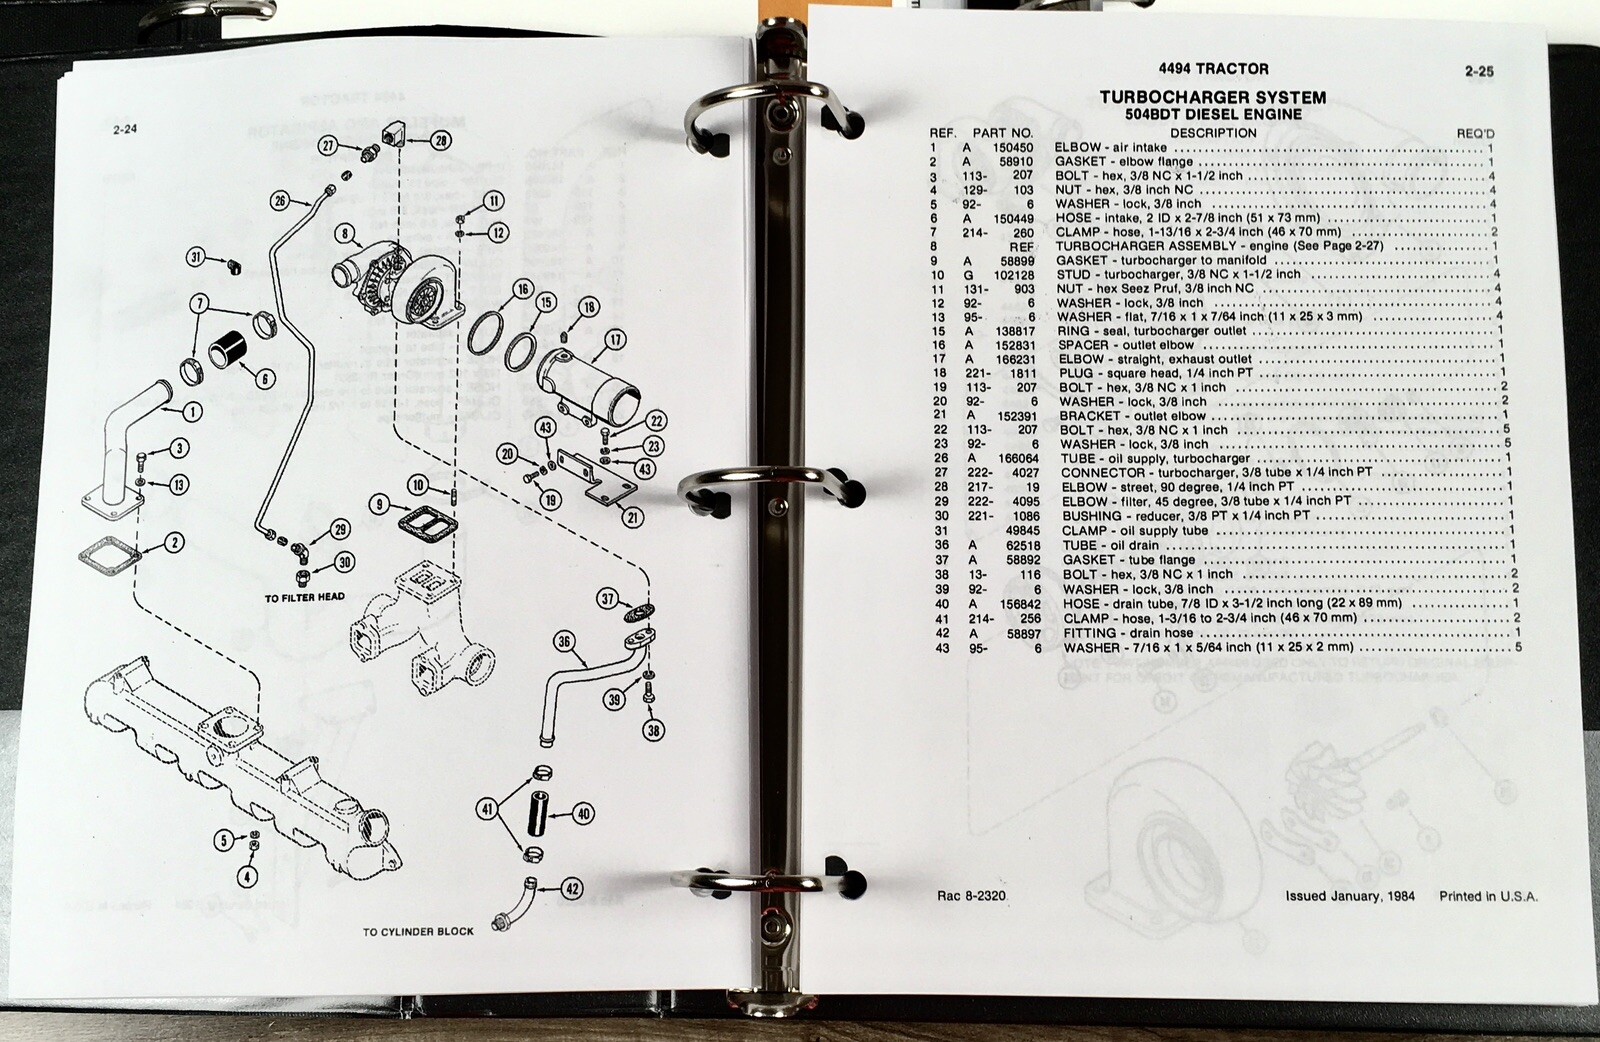 2-24
27
28
26
11
12
8
31
7
16
15
18
17
6
1
3
13
22
23
43
43
20
19
21
10
9
2
29
30
TO FILTER HEAD
37
36
39
38
5
4
41
40
42
TO CYLINDER BLOCK
4494 TRACTOR 2-25
TURBOCHARGER SYSTEM
504BDT DIESEL ENGINE
REF. PART NO. DESCRIPTION REQ'D
1 A 150450 ELBOW - air intake 1
2 A 58910 GASKET - elbow flange 1
3 113- 207 BOLT - hex, 3/8 NC x 1-1/2 inch 4
4 129- 103 NUT - hex, 3/8 inch NC 4
5 92- 6 WASHER - lock, 3/8 inch 4
6 A 150449 HOSE - intake, 2 ID x 2-7/8 inch (51 x 73 mm) 1
7 214- 260 CLAMP - hose, 1-13/16 x 2-3/4 inch (46 x 70 mm) 2
8 REF TURBOCHARGER ASSEMBLY - engine (See Page 2-27) 1
9 A 58899 GASKET - turbocharger to manifold 1
10 G 102128 STUD - turbocharger, 3/8 NC x 1-1/2 inch 4
11 131- 903 NUT - hex Seez Pruf, 3/8 inch NC 4
12 92- 6 WASHER - lock, 3/8 inch 4
13 95- 6 WASHER - flat, 7/16 x 1 x 7/64 inch (11 x 25 x 3 mm) 4
15 A 138817 RING - seal, turbocharger outlet 1
16 A 152831 SPACER - outlet elbow 1
17 A 166231 ELBOW - straight, exhaust outlet 1
18 221- 1811 PLUG - square head, 1/4 inch PT 1
19 113- 207 BOLT - hex, 3/8 NC x 1 inch 2
20 92- 6 WASHER - lock, 3/8 inch 2
21 A 152391 BRACKET - outlet elbow 1
22 113- 207 BOLT - hex, 3/8 NC x 1 inch 5
23 92- 6 WASHER - lock, 3/8 inch 5
26 A 166064 TUBE - oil supply, turbocharger 1
27 222- 4027 CONNECTOR - turbocharger, 3/8 tube x 1/4 inch PT 1
28 217- 19 ELBOW - street, 90 degree, 1/4 inch PT 1
29 222- 4095 ELBOW - filter, 45 degree, 3/8 tube x 1/4 inch PT 1
30 221- 1086 BUSHING - reducer, 3/8 PT x 1/4 inch PT 1
31 49845 CLAMP - oil supply tube 1
36 A 62518 TUBE - oil drain 1
37 A 58892 GASKET - tube flange 1
38 13- 116 BOLT - hex, 3/8 NC x 1 inch 2
39 92- 6 WASHER - lock, 3/8 inch 2
40 A 156842 HOSE - drain tube, 7/8 ID x 3-1/2 inch long (22 x 89 mm) 1
41 214- 256 CLAMP - hose, 1-3/16 to 2-3/4 inch (46 x 70 mm) 2
42 A 58897 FITTING - drain hose 1
43 95- 6 WASHER - 7/16 x 1 x 5/64 inch (11 x 25 x 2 mm) 5
Rac 8-2320 Issued January, 1984 Printed in U.S.A.